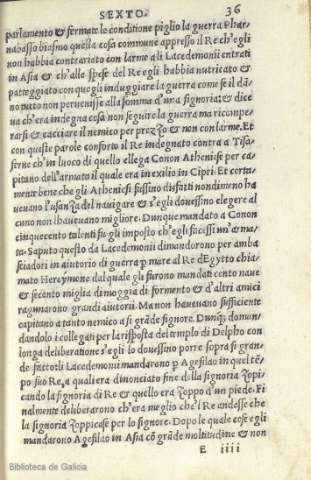 SEXTO. 36
parlamento & fermato lo conditione piglio la guerra Phar-
nabasso biasmo quella cosa commune appresso il Re ch'egli
non habbia contrariato con larme alli Lacedemonii entrati
in Asia & ch'alle spese del Re egli habbia nutricato &
patteggiato con quegli induggiare la guerra come se il dan
no puto non pervenisse alla somma d'una signoria; & dice
va ch'era indegna cosa non seguire la guerra ma ricompe-
rarsi & cacciare il nemico per prezzo & non con larme. Et
con queste parole conforto il Re indegnato contra a Tisa-
ferne ch'in luoco di quello ellega Conon Atheniese per ca-
pitano dell'armata il quale era in exilio in Cipri. Et certa-
mente bene che gli Atheniesi fussino disfatti nondimeno ha
veuano l'usanza del navigare & s'egli douessino elegere al
cuno non l'haueuano migliore. Dunque mandato a Conon
cinquecento talenti fu gli imposto ch'egli facessi un'arma-
ta. Saputo questo da Lacedemonii dimandorono per amba
sciadori in aiutorio di guerra p mare al Re d'Egytto chia-
mato Hercynione dal quale gli furono mandati cento naue
& secento miglia di moggia di formento & d'altri amici
ragunarono grandi aiutorii. Ma non haueuano sufficiente
capitano a tanto nemico a si gráde signore. Dunq; domun-
dandolo i collegati per la risposta del templo di Delpho con
longa deliberatione s'egli lo douessino porre sopra si gran-
de fatto li Lacedemonii mandarono p Agesilao in quel tẽ-
po suo Re, a quali era dinonciato fine dilla signoria zopi-
cando la signoria di Re & quello era zoppo d'un piede. Fi
nalmente deliberarono ch'era meglio che'l Re andesse che
la signoria zoppicase per lo signore. Dopo le quale cose egli
mandarono Agesilao in Asia cõ gráde moltitudine & non
E iiii
Biblioteca de Galicia